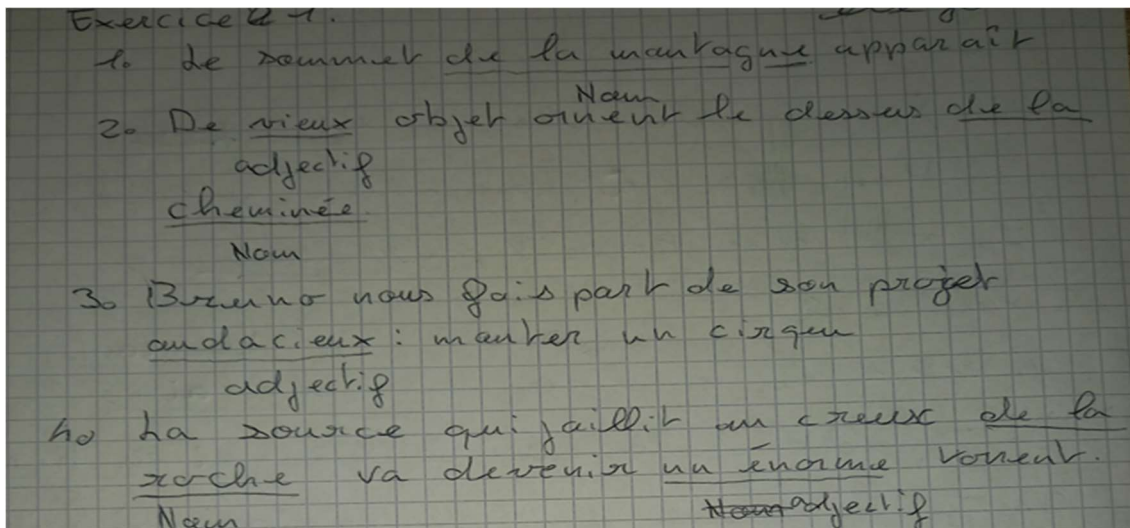 Exercice 1.
1. Le sommet de la montagne apparaît
Nom
2. De vieux objet ornent le dessus de la
adjectif
cheminée
Nom
3. Bruno nous fais part de son projet
audacieux : monter un cirque
adjectif
4. La source qui jaillit au creux de la
roche va devenir un énorme torrent.
Nom Nom adjectif